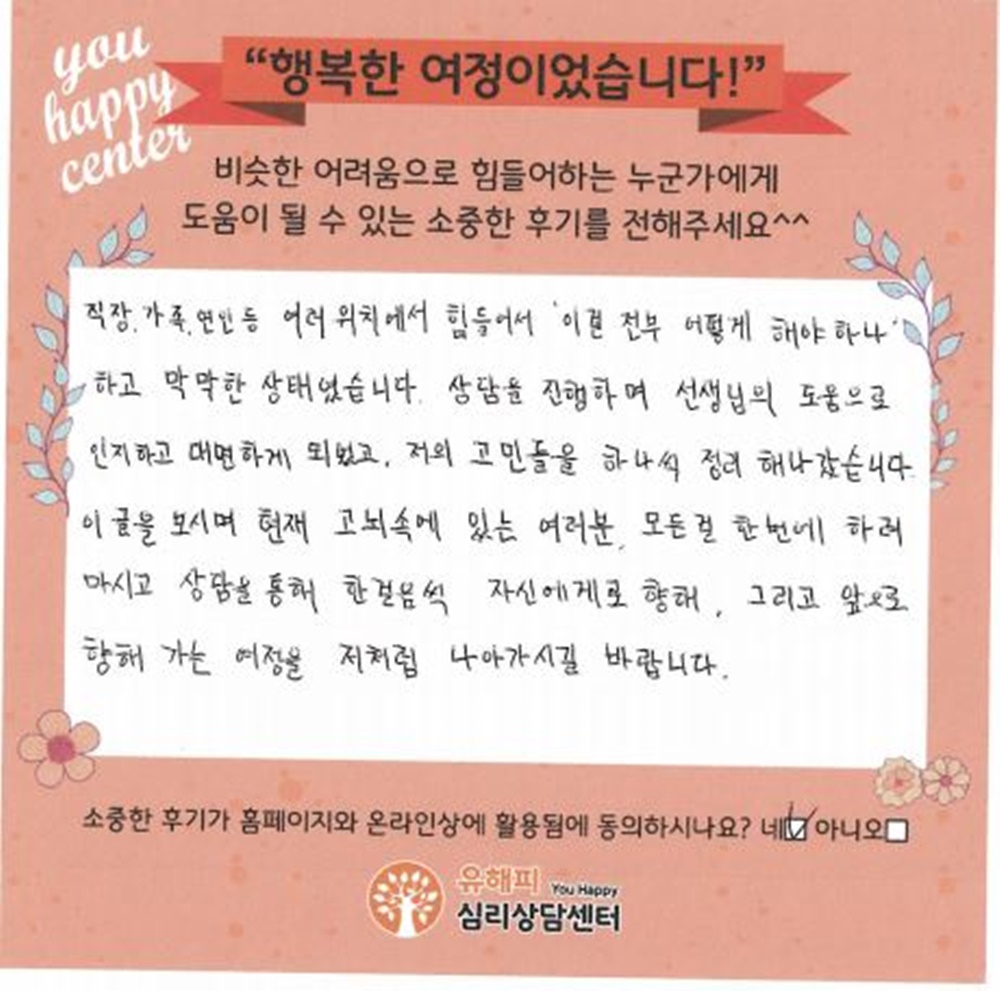 you
happy
center
“행복한 여정이었습니다!”
비슷한 어려움으로 힘들어하는 누군가에게
도움이 될 수 있는 소중한 후기를 전해주세요^^
직장, 가족, 연인 등 여러 위치에서 힘들어서 '이걸 전부 어떻게 해야 하나'
하고 막막한 상태였습니다. 상담을 진행하며 선생님의 도움으로
인지하고 대면하게 되었고, 저의 고민들을 하나씩 정리 해나갔습니다.
이 글을 보시며 현재 고뇌속에 있는 여러분, 모든걸 한번에 하려
마시고 상담을 통해 한걸음씩 자신에게로 향해, 그리고 앞으로
향해 가는 여정을 저처럼 나아가시길 바랍니다.
소중한 후기가 홈페이지와 온라인상에 활용됨에 동의하시나요? 네☑ 아니오□
유해피 You Happy
심리상담센터